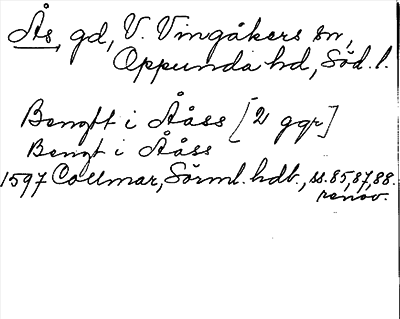 Ås, gd, V. Vingåkers sn,
Oppunda hd, Söd. l.
Bengtt i Ååss [2 ggr]
Bengt i Ååss
1597 Collmar, Sörml. hdb., ss. 85, 87, 88.
renov.